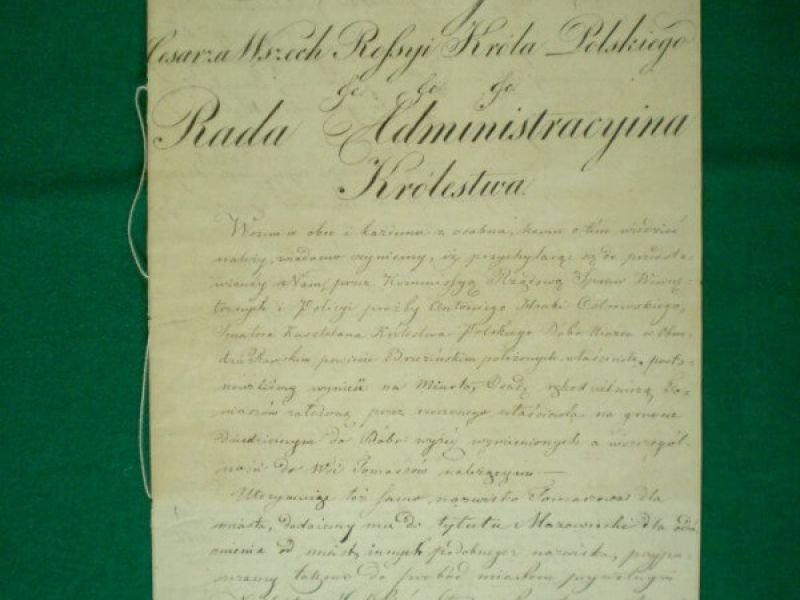 Cesarza Wszech Rossyi Króla Polskiego
&c. &c. &c.
Rada Administracyina
Królestwa
Wszem w obec i każdemu z osobna, komu o tem wiedzieć
należy, wiadomo czyniemy, iż przychylaiąc się do przedsta-
wionéy Nam, przez Kommissyą Rządową Spraw Wewnę-
trznych i Policyi proźby Antoniego Hrabi Ostrowskiego,
Senatora Kasztelana Królestwa Polskiego Dóbr Uiazd w Obwo-
dzie Rawskim powiecie Brzezińskim położonych właściciela, posta-
nowiliśmy wynieść na Miasto, Osadę rękodzielniczą To-
maszów założoną przez rzeczonego właściciela na gruncie
dziedzicznym do Dóbr wyżéy wymienionych a w szczegól-
ności do Wsi Tomaszów należącym.—
Utrzymuiąc toż samo nazwisko Tomaszowa dla
miasta, dodaiemy mu do tytułu Mazowiecki dla odró-
żnienia od miast innych podobnegoż nazwiska, przypu-
szczamy takowe do swobód miastom prywatnym